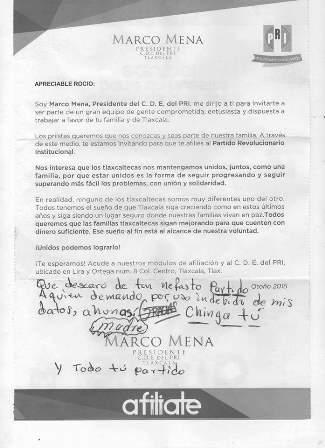 MARCO MENA
PRESIDENTE
C.D.E. DEL PRI
TLAXCALA
PRI
APRECIABLE ROCIO:
Soy Marco Mena, Presidente del C. D. E. del PRI, me dirijo a ti para invitarte a
ser parte de un gran equipo de gente comprometida, entusiasta y dispuesta a
trabajar a favor de tu familia y de Tlaxcala.
Los priistas queremos que nos conozcas y seas parte de nuestra familia. A través
de este medio, te estamos invitando para que te afilies al Partido Revolucionario
Institucional.
Nos interesa que los tlaxcaltecas nos mantengamos unidos, juntos, como una
familia, por que estar unidos es la forma de seguir progresando y seguir
superando más fácil los problemas, con unión y solidaridad.
En realidad, ninguno de los tlaxcaltecas somos muy diferentes uno del otro.
Todos tenemos el sueño de que Tlaxcala siga creciendo como en estos últimos
años y siga siendo un lugar seguro donde nuestras familias vivan en paz. Todos
queremos que las familias tlaxcaltecas sigan mejorando para que cuenten con
dinero suficiente. Ese sueño al fin está al alcance de nuestra voluntad.
¡Unidos podemos lograrlo!
¡Te esperamos! Acude a nuestros módulos de afiliación y al C. D. E. del PRI,
ubicado en Lira y Ortega num. 8 Col. Centro, Tlaxcala, Tlax.
Otoño 2015
Que descaro de tan nefasto Partido
Aquien demando, por uso indebido de mis
datos, ahunas Chinga tú
madre
MARCO MENA
PRESIDENTE
C.D.E. DEL PRI
TLAXCALA
Y Todo tú partido
afíliate